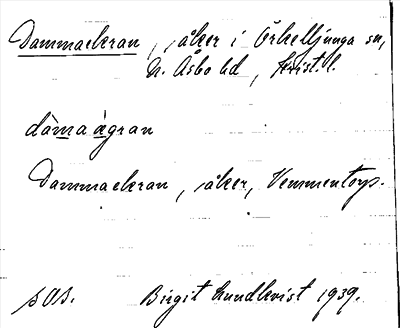 Dammaekran, åker i Örkelljunga sn,
N. Åsbo hd, Krist. l.
dàma àgran
Dammaekran, åker, Vemmentorp.
sOs. Birgit Lundkvist 1939.